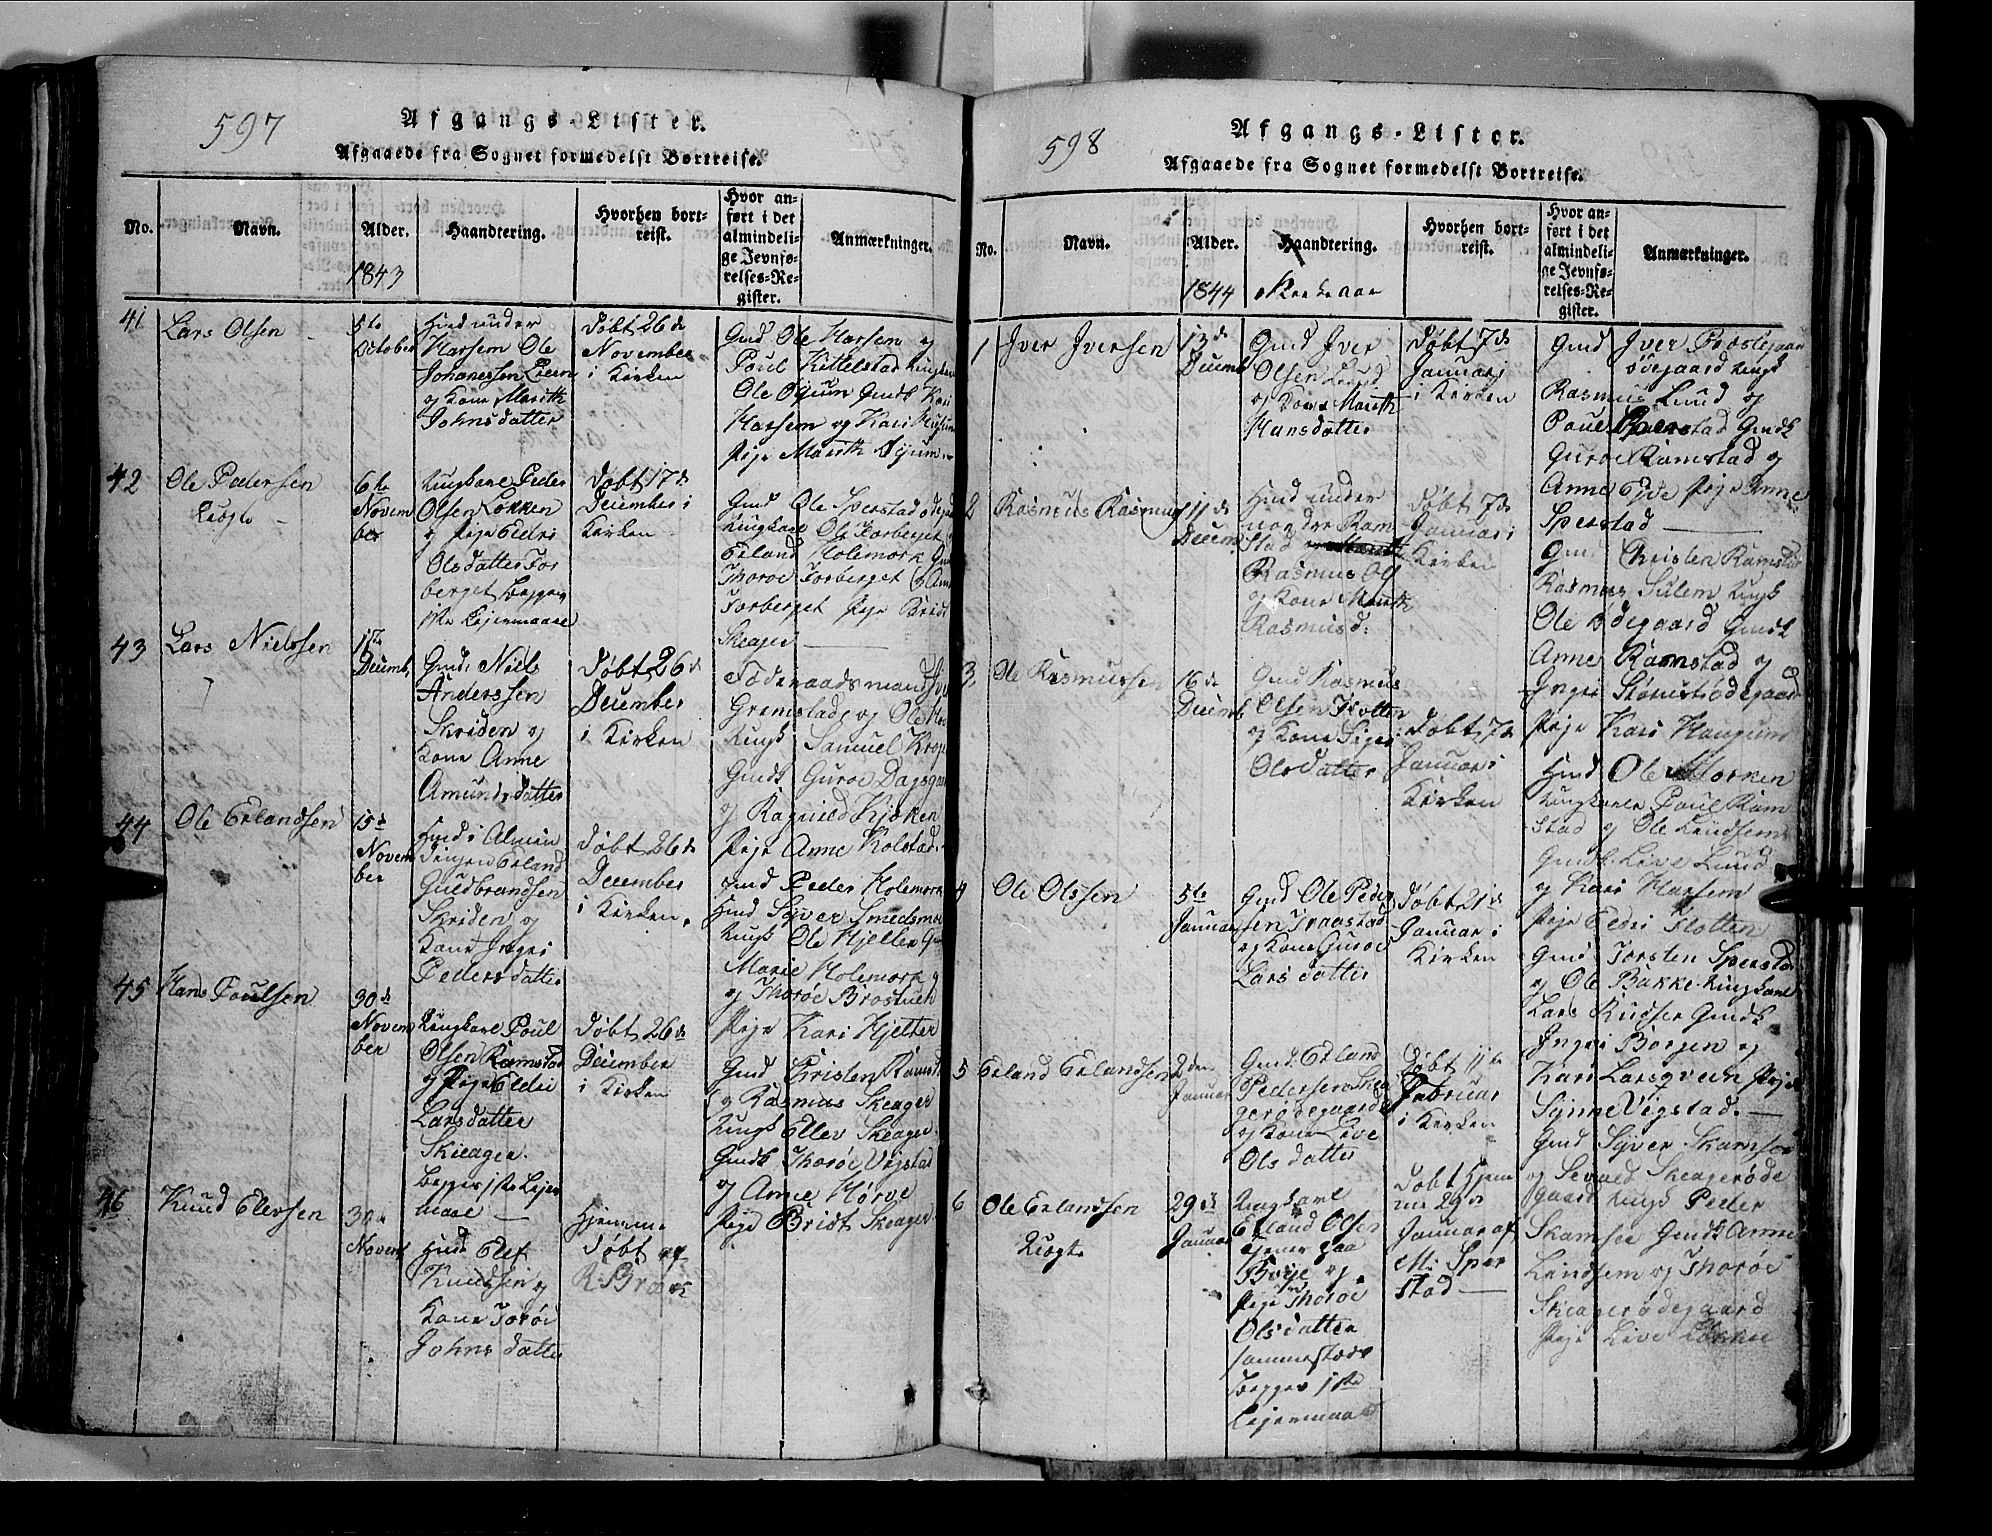 597
Afgangs-Lister.
Afgaaede fra Sognet formedelst Bortreise.
No.
Navn.
Alder.
1843
Haandtering.
Hvorhen bort-
reist.
Hvor an-
ført i det
almindeli-
ge Jevnfø-
relses-Re-
gister.
Anmærkninger.
41
Lars Olsen
5te
October
Hmd under
Harsem Ole
Johanessen
og Kone Marith
Johnsdatter
Døbt 26de
November
i Kirken
Gmd Ole Harsem og
Poul Kittelstad
Ole Øyum Gmdk Kari
Harsem og Kari
Pige Marith Øyum
42
Ole Pedersen
Uægte
6te
Novem
ber
Ungkarl Peder
Olsen Løkken
og Pige Eldri
Olsdatter For
berget Begges
1ste Lejermaal
Døbt 17de
December i
Kirken
Gmd Ole Sperstad
Ungkarl Ole Forberget
Erland Holemork
Thoroe Forberget og
Forberget Pige Bridt
Skeager
43
Lars Nielssen
1ste
Decemb.
Gmd. Niels
Anderssen
Skriden og
Kone Anne
Amundsdatter
Døbt 26de
December
i Kirken
Føderaadsmand
Gramstad og Ole
Ungk Samuel
Gmdk Guroe
og Ragnild Kjøken
Pige Anne Kolstad
44
Ole Erlandsen
15de
Novem
ber
Hmd i Almen
dingen Erland
Guldbrandsen
Skriden og
Kone Ingri
Pedersdatter
Døbt 26de
December
i Kirken.
Gmd Peder Holemork
Hmd Syver Smedsmoe
Ungk Ole Hjelter
Marie Holemork
og Thoroe Brostuen
Pige Kari Hjelter
45
Hans Poulsen
30de
Novem
ber
Ungkarl Poul
Olsen Ramstad
og Pige Eldri
Larsdatter
Skieager.
Begges 1ste Lejer
maal
Døbt 26de
December
i Kirken
Gmd Kristen Ramstad
og Rasmus Skeager
Ungk Ellev Skeager
Gmdk Thoroe Vigstad
og Anne Hørve
Pige Bridt Skeager
46
Knud Elevsen
30te
Novemb
Hmd Elef
Knudsen og
Kone Toroe
Johnsdatter
Hjemme
Døbt af
R.
598
Afgangs-Lister.
Afgaaede fra Sognet formedelst Bortreise.
No.
Navn.
Alder.
1844
Haandtering.
Hvorhen bort-
reist.
Hvor an-
ført i det
almindeli-
ge Jevnfø-
relses-Re-
gister.
Anmærkninger.
1
Iver Iversen
13de
Decemb
Gmd Iver
Olsen Lund
og Kone Marith
Hansdatter
Døbt 7de
Januari
i Kirken
Gmd Iver
Ødegaard Ungk
Rasmus Lund og
Poul Sperstad Gmdk
Guroe Ramstad og
Anne Pige Anne
Sperstad
2
Rasmus Rasmus
11de
Decemb
Hmd under
nordre Ram
stad
Rasmus Ols
og Kone Marith
Rasmusd:
Døbt 7de
Januari
Kirken
Gmd Christen Ramstad
Rasmus Sulem Ungk
Ole Ødegaard Gmdk
Anne Ramstad og
Ingri
Pige Kari Haugum
3
Ole Rasmussen
16de
Decemb
Gmd Rasmus
Olsen Flotten
og Kone Sigri
Olsdatter
Døbt 7de
Januari
Kirken
Hmd Ole Morken
Ungkarle Poul Ram
stad og Ole Lindsem
Gmdk. Live Lund
og Kari Harsem
Pige Eldri Flotten
4
Ole Olssen
5te
Januar
Gmd Ole Peder
sen Traastad
og Kone Guroe
Larsdatter
Døbt 21de
Januar i
Kirken
Gmd Torsten Sperstad
og Ole Bakke Ungkarl
Lars Gmdk
Ingri Borgen og
Kari Larsqveen Pige
Synne Vigstad.
5
Erland Erlandsen
2den
Januar
Gmd. Erland
Pedersen Skea
gerødegaard
og Kone Live
Olsdatter
Døbt 11te
Februar
i Kirken
Gmd Syver Skamser
og Sevald Skeagerøde
gaard Ungk Peder
Skamser Gmdk Anne
Lindsem og Thoroe
Skeagerødegaard
Pige Live Løkke
6
Ole Erlandsen
Uægte
29de
Januar
Ungkarl
Erland Olsen
tjener paa
Bøye og
Pige Thoroe
Olsdatter
sammesteds
Begges 1ste
Lejermaal
Døbt Hjem
me 29de
Januar af
M. Sper
stad